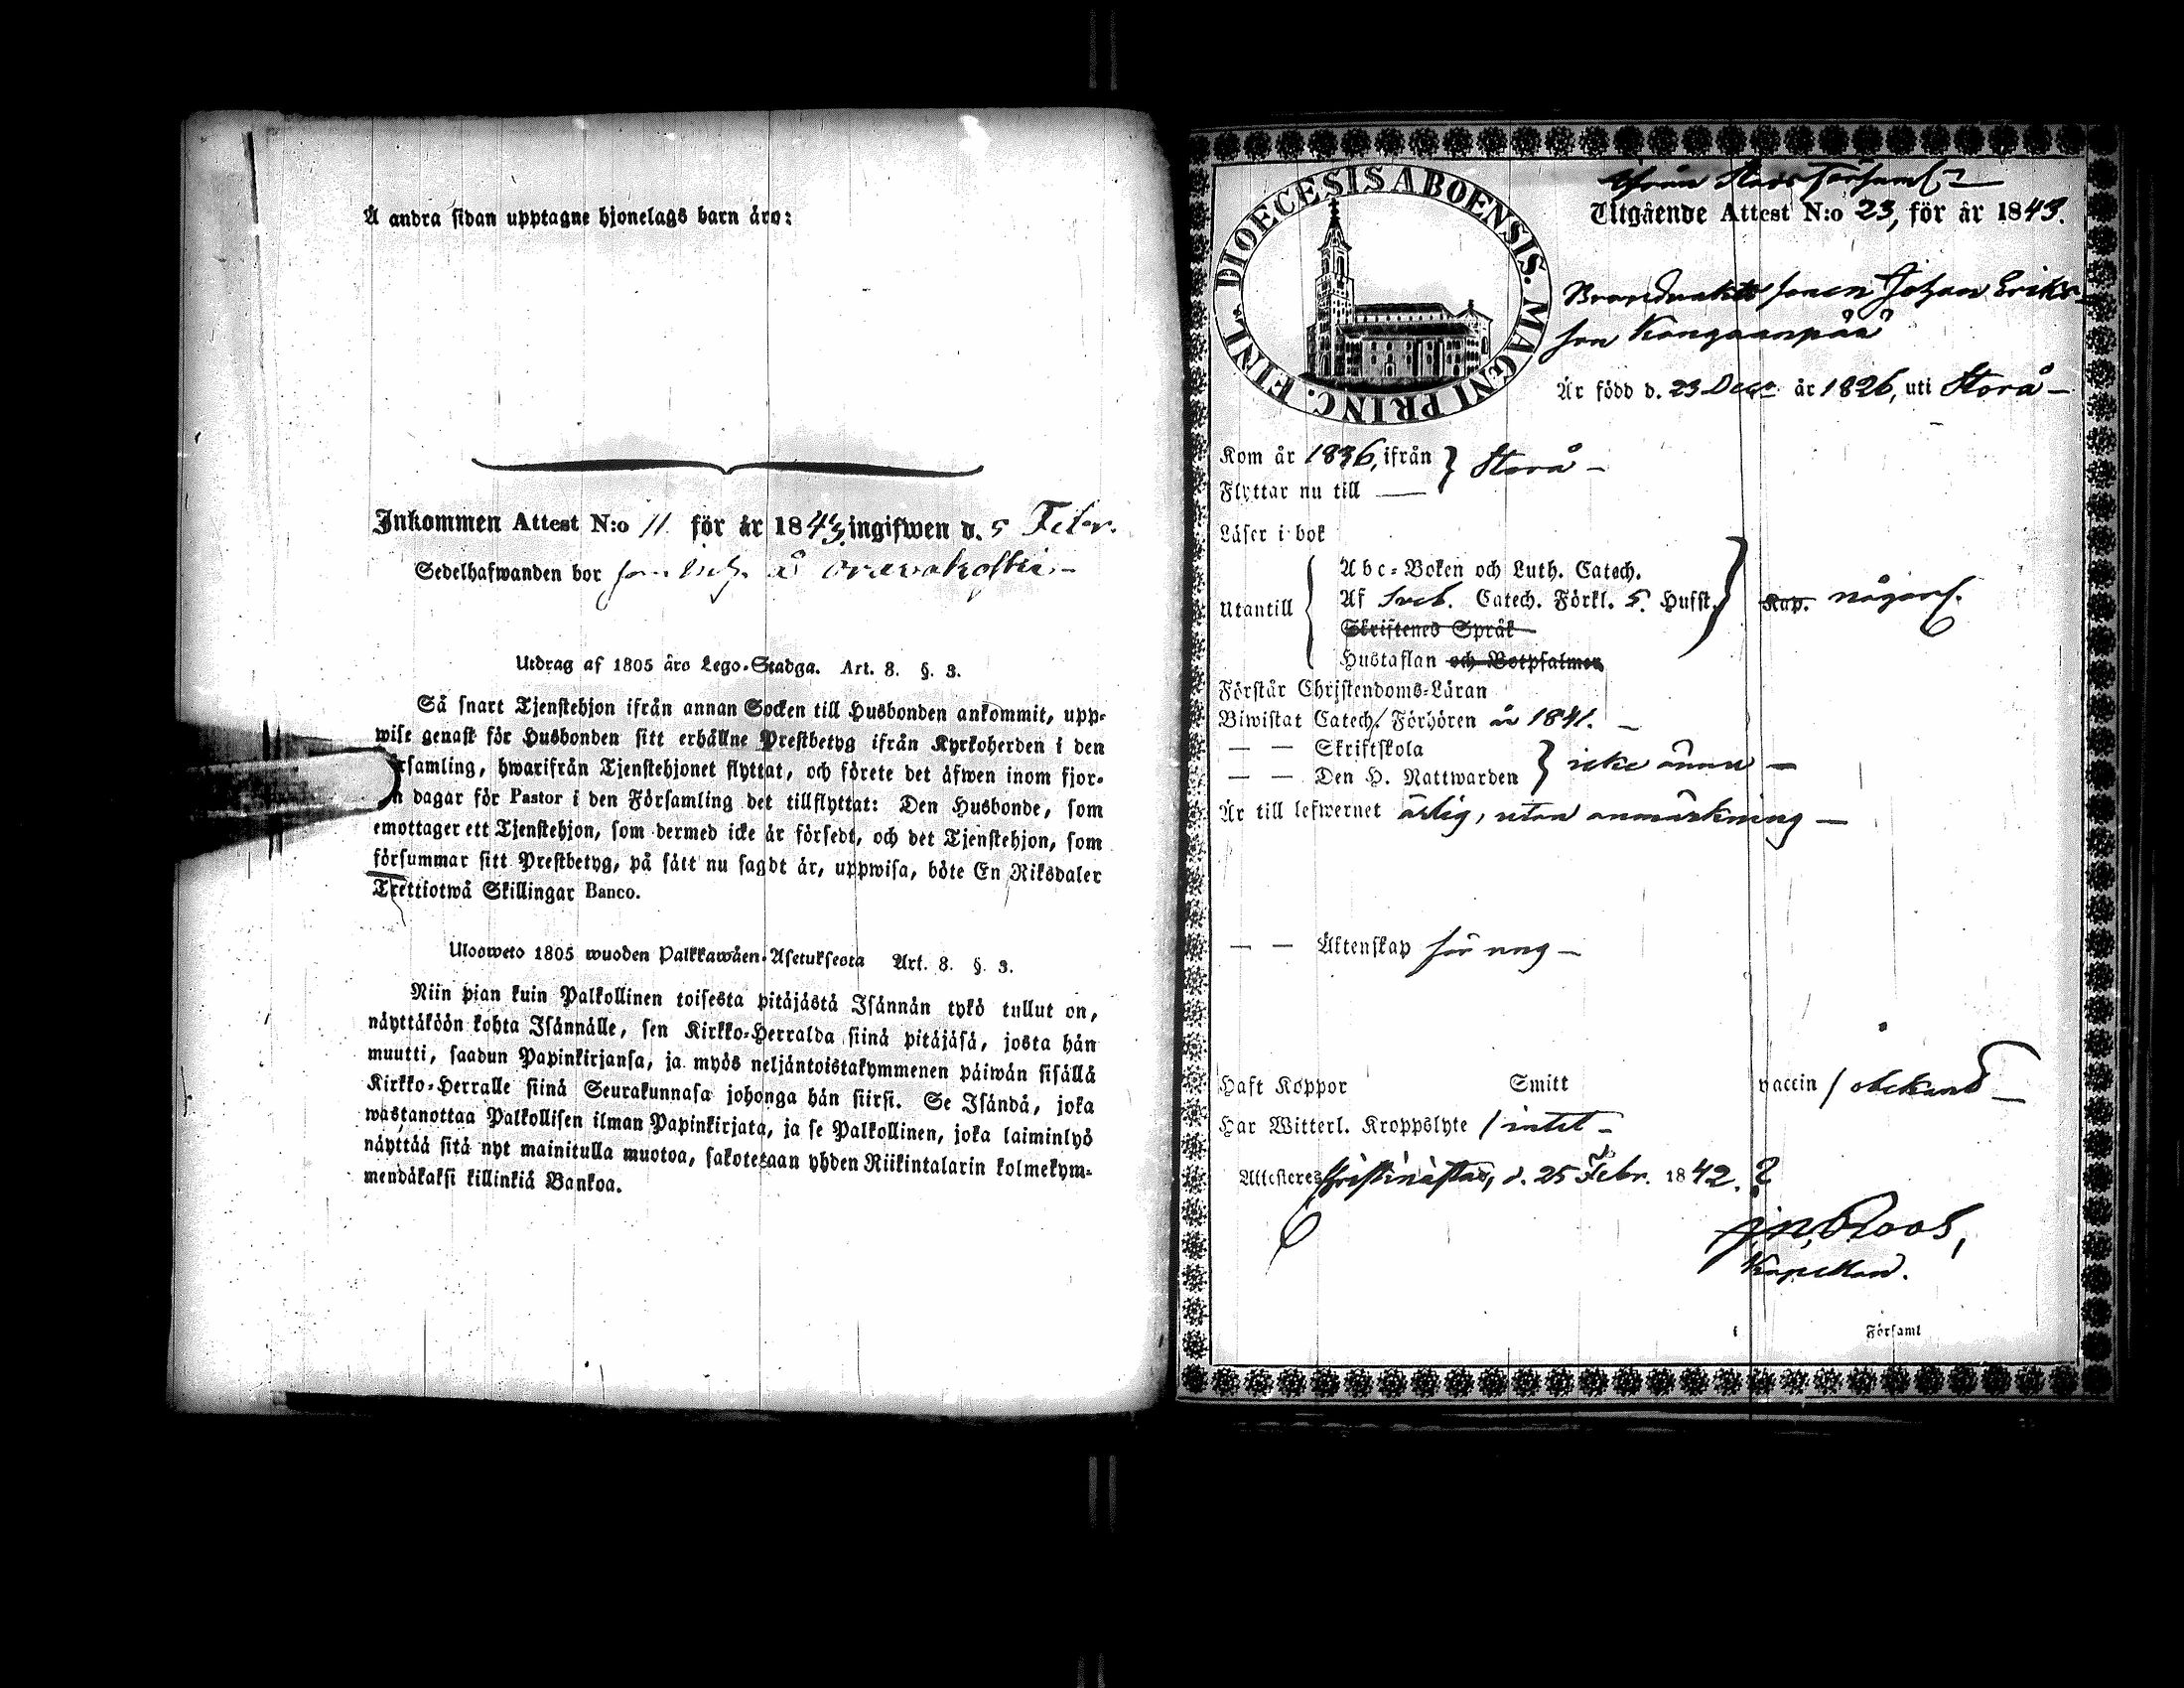 Å andra sidan upptagne hjonelags barn äro:
Inkommen Attest N:o 11 för år 1843, ingifwen d. 5 Febr.
Sedelhafwanden bor som inh. å Oravakoski
Utdrag af 1805 års Lego-Stadga. Art. 8. §. 3.
Så snart Tjenstehjon ifrån annan Socken till Husbonden ankommit, upp-
wise genast för Husbonden sitt erhållne Prestbetyg ifrån Kyrkoherden i den
församling, hwarifrån Tjenstehjonet flyttat, och förete det äfwen inom fjor-
n dagar för Pastor i den Församling det tillflyttat: Den Husbonde, som
emottager ett Tjenstehjon, som dermed icke är försedt, och det Tjenstehjon, som
försummar sitt Prestbetyg, på sätt nu sagdt är, uppwisa, böte En Riksdaler
Trettiotwå Skillingar Banco.
Ulosweto 1805 wuoden Palkkawäen-Asetuksesta Art. 8. §. 3.
Niin pian kuin Palkollinen toisesta pitäjästä Isännän tykö tullut on,
näyttäköön kohta Isännälle, sen Kirkko-Herralda siinä pitäjäsä, josta hän
muutti, saadun Papinkirjansa, ja myös neljäntoistakymmenen päiwän sisällä
Kirkko-Herralle siinä Seurakunnasa johonga hän siirsi. Se Isändä, joka
wastanottaa Palkollisen ilman Papinkirjata, ja se Palkollinen, joka laiminlyö
näyttää sitä nyt mainitulla muotoa, sakotetaan yhden Riikintalarin kolmekym-
mendäkaksi killinkiä Bankoa.
DIOECESIS ABOENSIS. MAGNI PRINC. FINL.
ifrån Stads Församl.
Utgående Attest N:o 23, för år 1843.
Brandvakts sonen Johan Eriks-
son Kangaanpää
Är född d. 23 Decr. år 1826, uti Storå
Kom år 1836, ifrån } Storå
Flyttar nu till
Läser i bok
Abc-Boken och Luth. Catech.
Utantill Af Sveb. Catech. Förkl. 5. Hufst. Kap. någorl.
Skriftenes Språk
Hustaflan och Botpsalmer
Förstår Christendoms-Läran
Biwistat Catech. Förhören år 1841.
— — Skriftskola
— — Den H. Nattwarden } icke ännu
Är till lefwernet ärlig, utan anmärkning
— — Äktenskap för ung
Haft Koppor Smitt vaccin / obekand
Har Witterl. Kroppslyte / intet
Attesteres Christinæstad, d. 25 Febr. 1842. ?
J.N. Roos,
Kapellan.
Församl